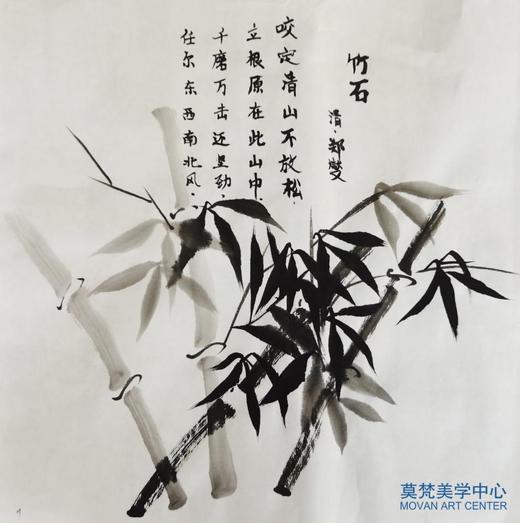 竹石
清·郑燮
咬定清山不放松.
立根原在此山中.
千磨万击还坚劲.
任尔东西南北风.
莫梵美学中心
MOVAN ART CENTER